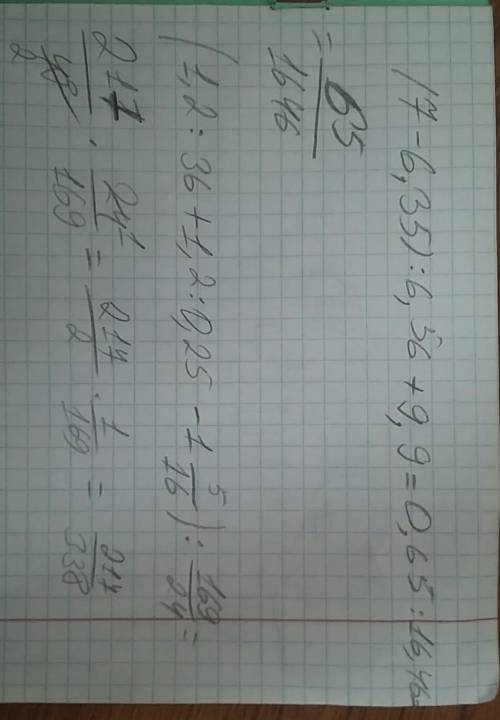 (7-6,35):6,56+9,9=0,65:16,46=
= 65/1646
(1,2:36+1,2:0,25-1 5/16):169/24=
217/48 · 24¹/169 = 217/2 · 1/169 = 217/338